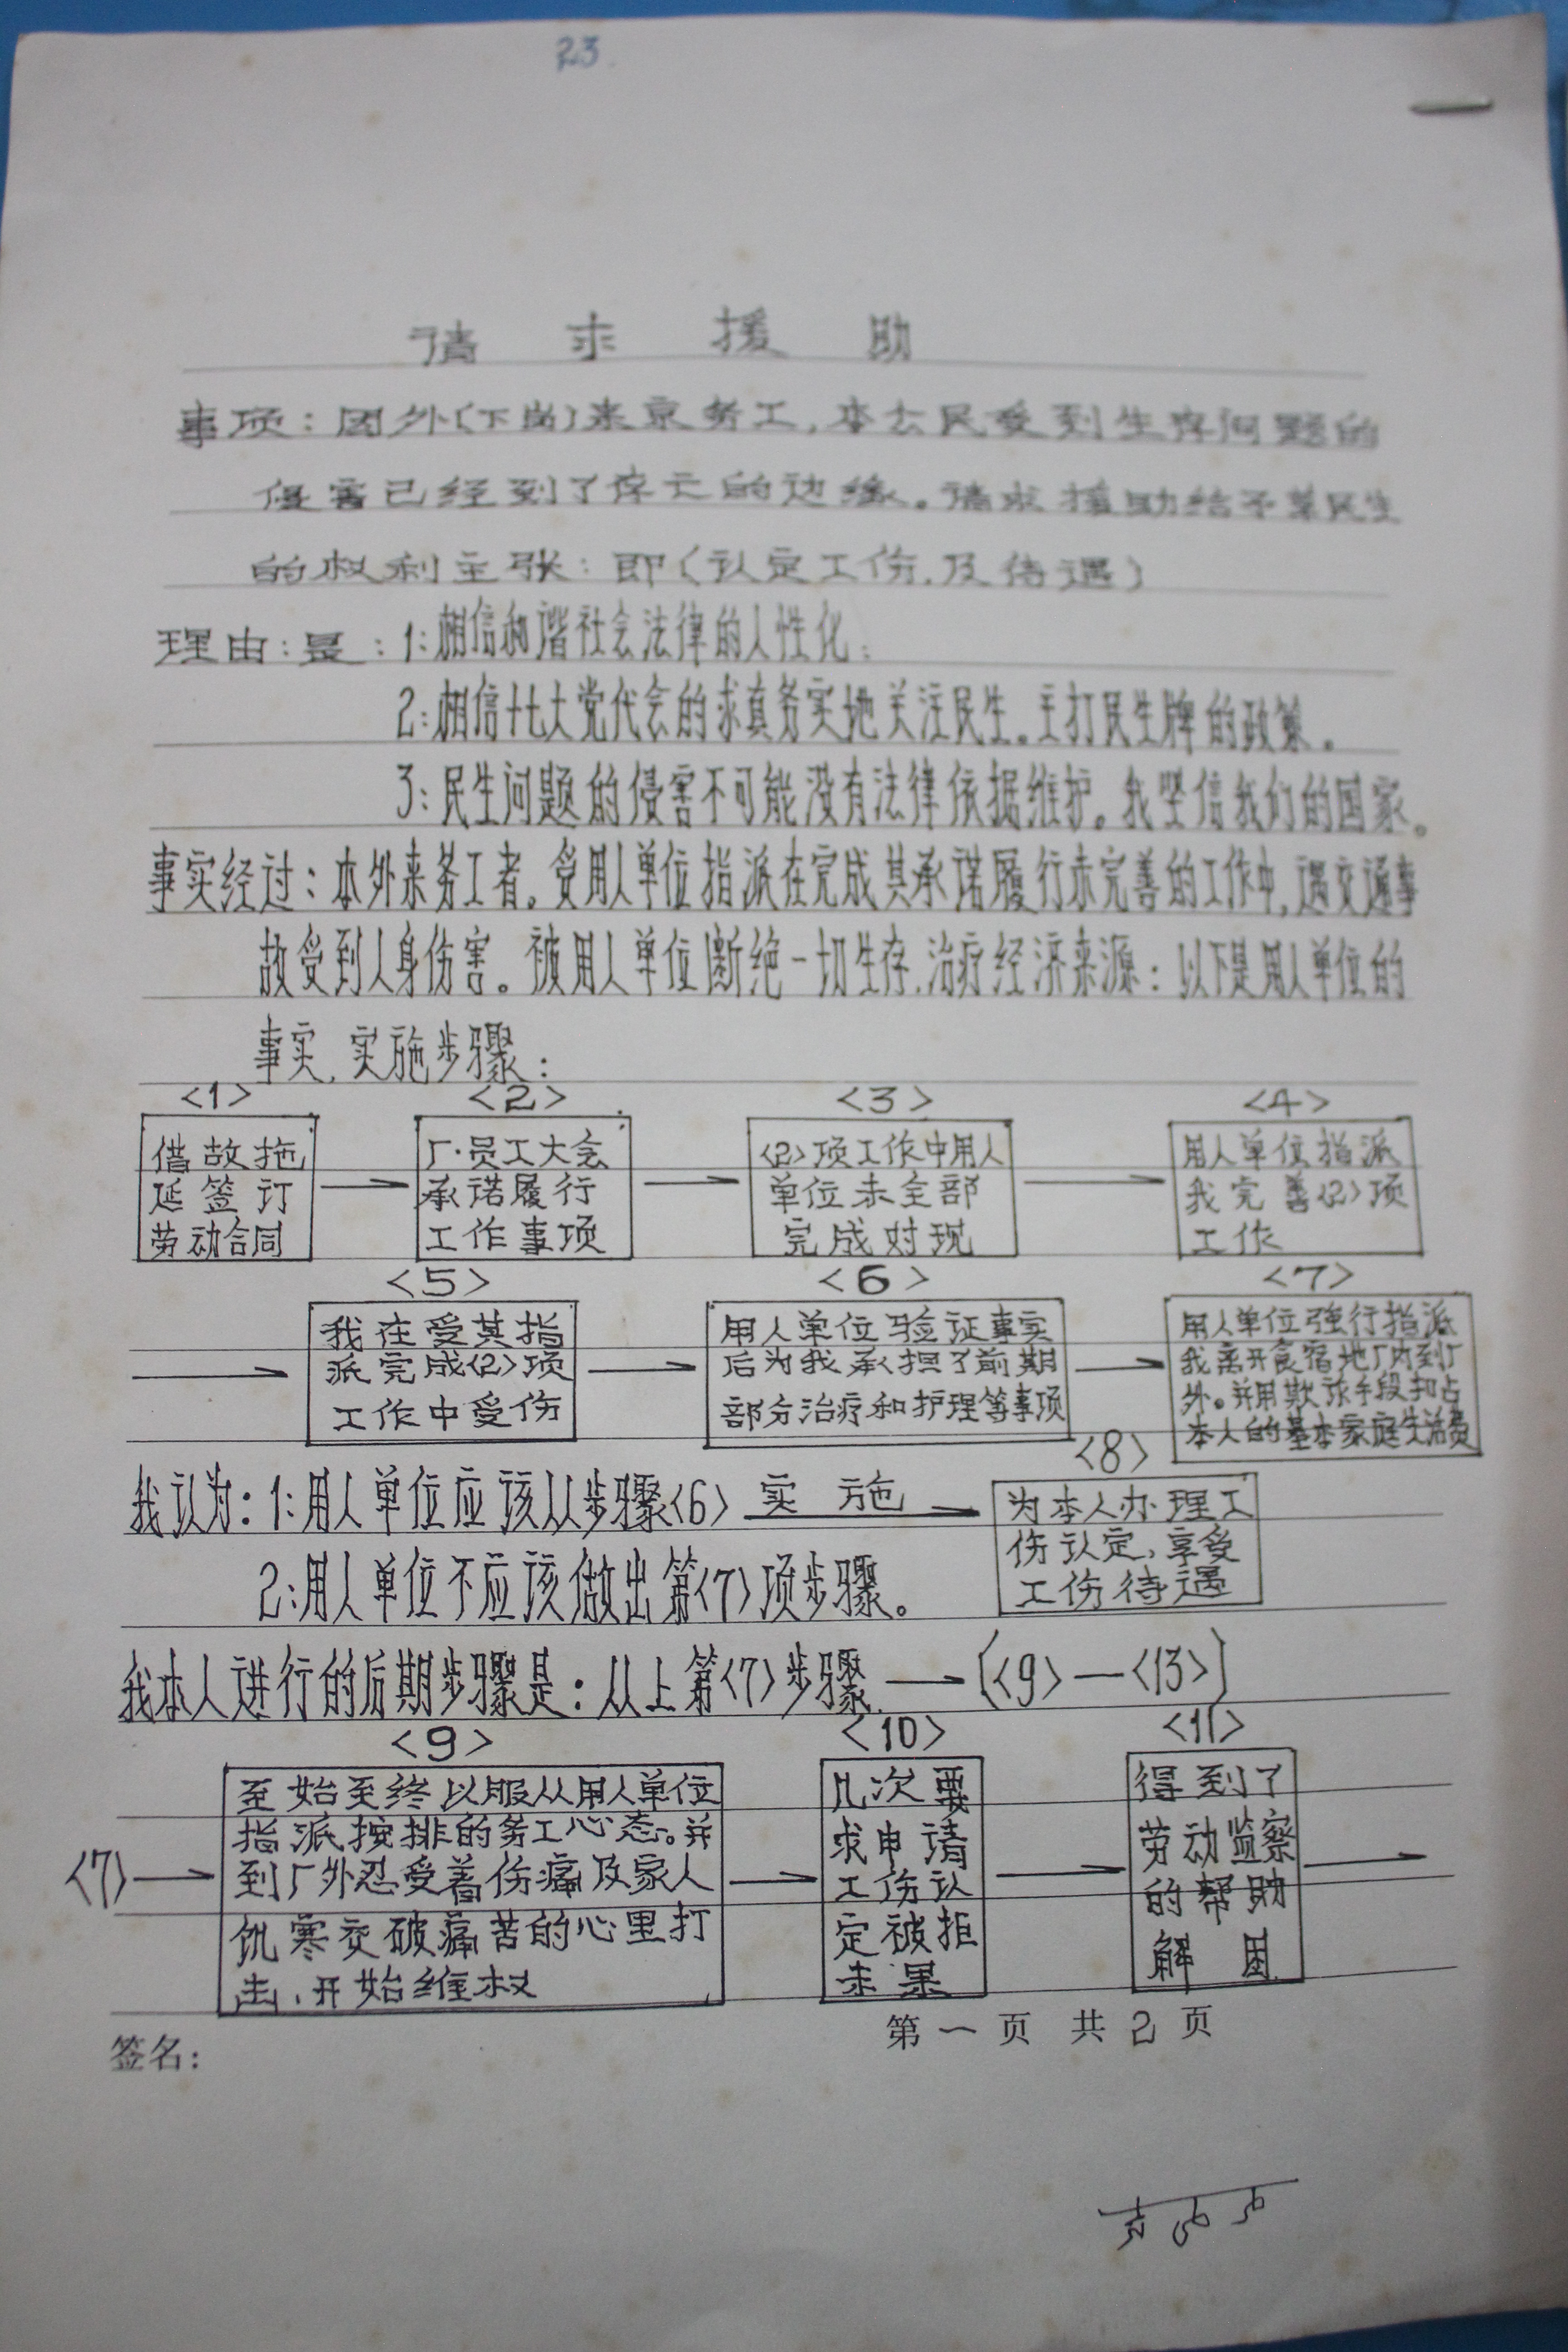 23
请求援助
事项：因外(下岗)来京务工，本公民受到生存问题的
侵害已经到了存亡的边缘。请求援助给予某民生
的权利主张：即(认定工伤，及待遇)
理由：是：1：相信和谐社会法律的人性化；
2：相信十七大党代会的求真务实地关注民生。主打民生牌的政策。
3：民生问题的侵害不可能没有法律依据维护。我坚信我们的国家。
事实经过：本外来务工者。受用人单位指派在完成其承诺履行未完善的工作中，遇交通事
故受到人身伤害。被用人单位断绝一切生存，治疗经济来源：以下是用人单位的
事实，实施步骤：
<1> <2> <3> <4>
借故拖
延签订
劳动合同
厂·员工大会
承诺履行
工作事项
<2>项工作中用人
单位未全部
完成对现
用人单位指派
我完善<2>项
工作
<5> <6> <7>
我在受其指
派完成<2>项
工作中受伤
用人单位验证事实
后为我承担了前期
部分治疗和护理等事项
用人单位强行指派
我离开食宿地厂内到厂
外。并用欺诈手段扣占
本人的基本家庭生活费
我认为：1：用人单位应该从步骤<6> 实施
<8>
为本人办理工
伤认定，享受
工伤待遇
2：用人单位不应该做出第<7>项步骤。
我本人进行的后期步骤是：从上第<7>步骤 (<9>—<13>)
<9> <10> <11>
<7>
至始至终以服从用人单位
指派按排的务工心态。并
到厂外忍受着伤痛及家人
饥寒交破痛苦的心里打
击，开始维权
几次要
求申请
工伤认
定被拒
未果
得到了
劳动监察
的帮助
解困
签名：
第一页 共2页